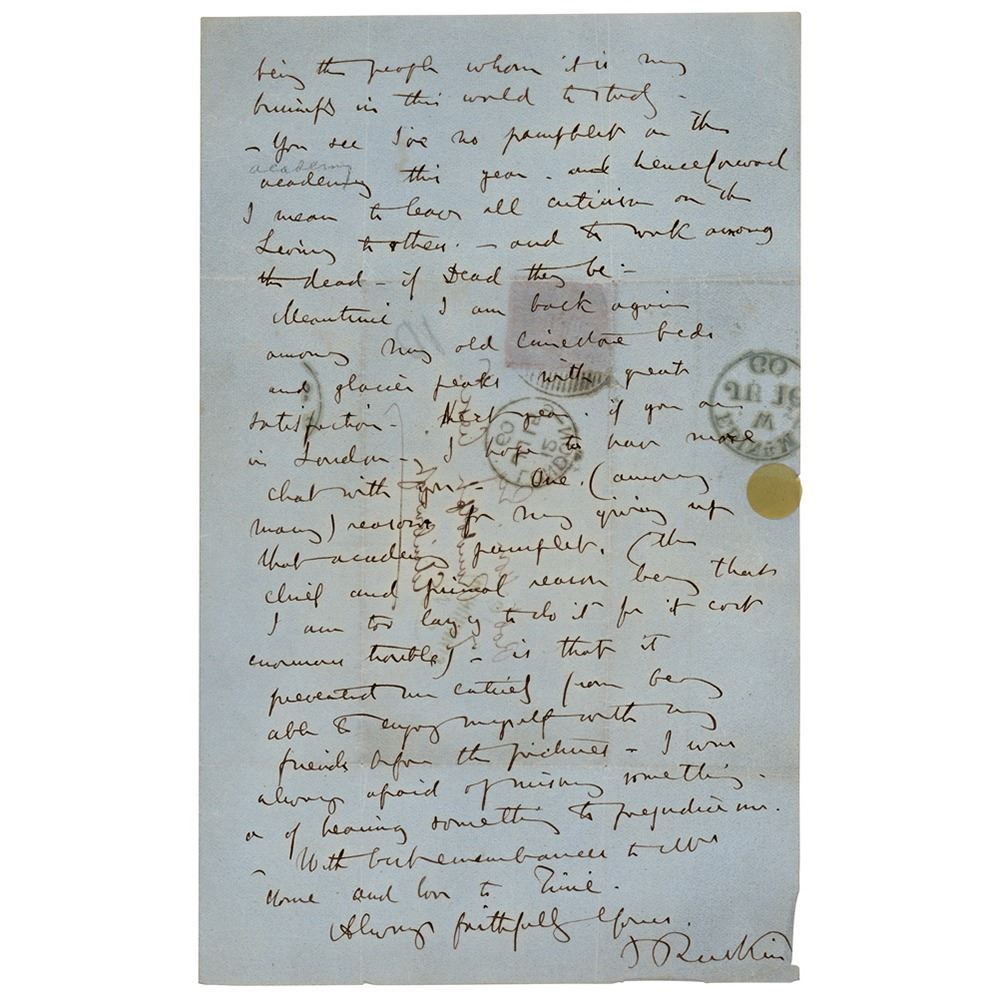 being the people whom it is my
business in this world to study –
– You see I've no pamphlet on the
academy
academy this year – and henceforward
I mean to leave all criticism on the
Living to others. – and to work among
the dead – if Dead they be –
Meantime I am back again
among my old limestone beds
and glacier peaks with great
satisfaction – Next year. if you are
in London – I hope to have more
chat with you – One. (among
many) reasons for my giving up
that academy pamphlet. (the
chief and primal reason being that
I am too lazy to do it for it cost
enormous trouble) – is that it
prevented me entirely from being
able to enjoy myself with my
friends before the pictures – I was
always afraid of missing something –
or of hearing something to prejudice me.
– With best remembrances to Mrs
and love to
Always faithfully Yours.
J Ruskin